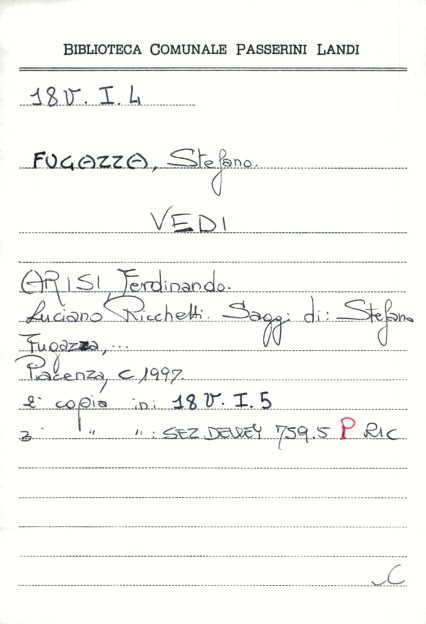 BIBLIOTECA COMUNALE PASSERINI LANDI
18 V. I. 4
FUGAZZA, Stefano.
VEDI
ARISI, Ferdinando.
Luciano Ricchetti. Saggi di: Stefano
Fugazza,...
Piacenza, c 1997.
2ª copia in: 18 V. I. 5
3ª " ": SEZ DEWEY 759.5 P RIC